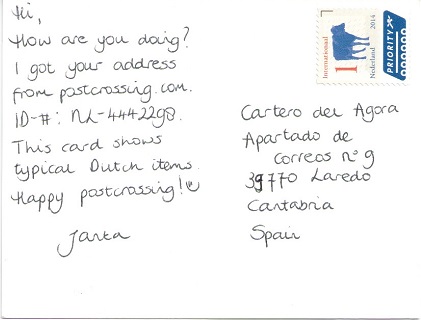 Hi,
How are you doing?
I got your address
from postcrossing.com.
ID-#: NL-4442298.
This card shows
typical Dutch items.
Happy postcrossing!
Janka
Internationaal
1
Nederland 2014
PRIORITY
Cartero del Agora
Apartado de
Correos nº 9
39770 Laredo
Cantabria
Spain